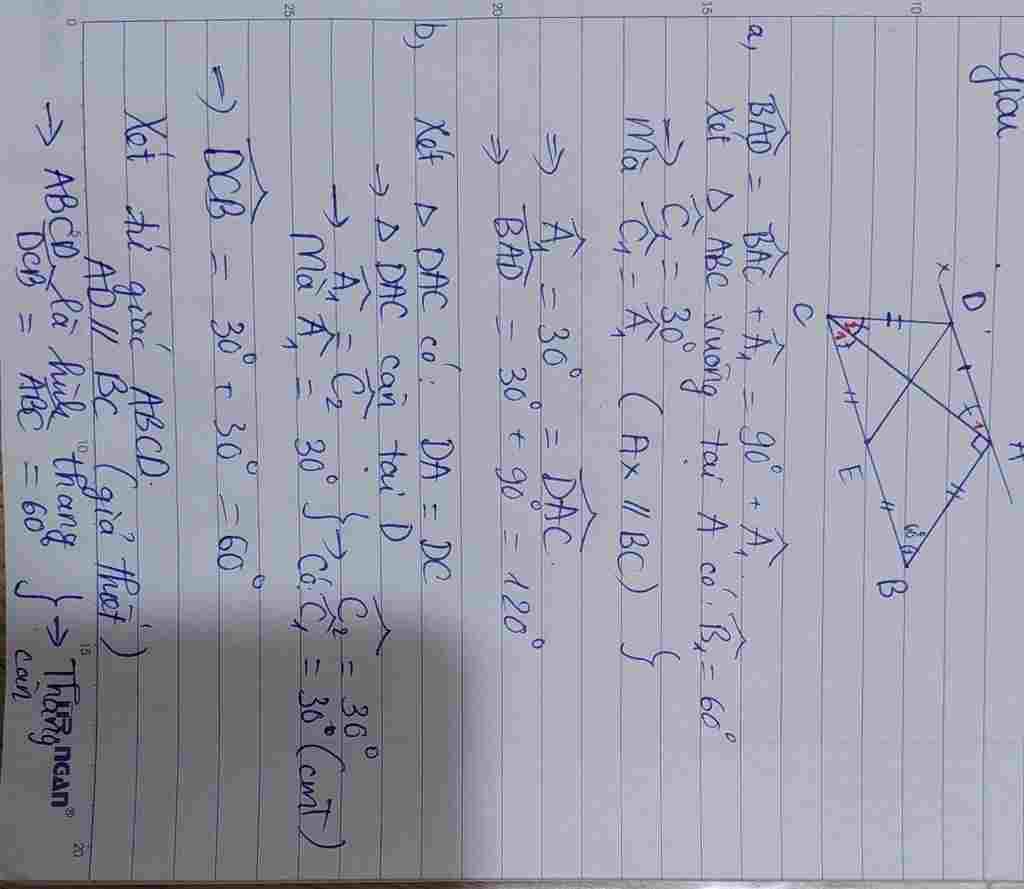 Giải
D
x
A
C
E
B
60°
a, \widehat{BAD} = \widehat{BAC} + \widehat{A_1} = 90° + \widehat{A_1}
Xét Δ ABC vuông tại A có: \widehat{B_1} = 60°
→ \widehat{C_1} = 30°
Mà \widehat{C_1} = \widehat{A_1} (Ax // BC) }
⇒ \widehat{A_1} = 30° = \widehat{DAC}
⇒ \widehat{BAD} = 30° + 90° = 120°
b, Xét Δ DAC có: DA = DC
→ Δ DAC cân tại D
→ \widehat{A_1} = \widehat{C_2}
Mà \widehat{A_1} = 30° } → \widehat{C_2} = 30°
Có \widehat{C_1} = 30° (cmt)
⇒ \widehat{DCB} = 30° + 30° = 60°
Xét tứ giác ABCD:
AD // BC (giả thiết)
→ ABCD là hình thang
\widehat{DCB} = \widehat{ABC} = 60° } → Thang cân
0
10
15
20
25
10
15
20